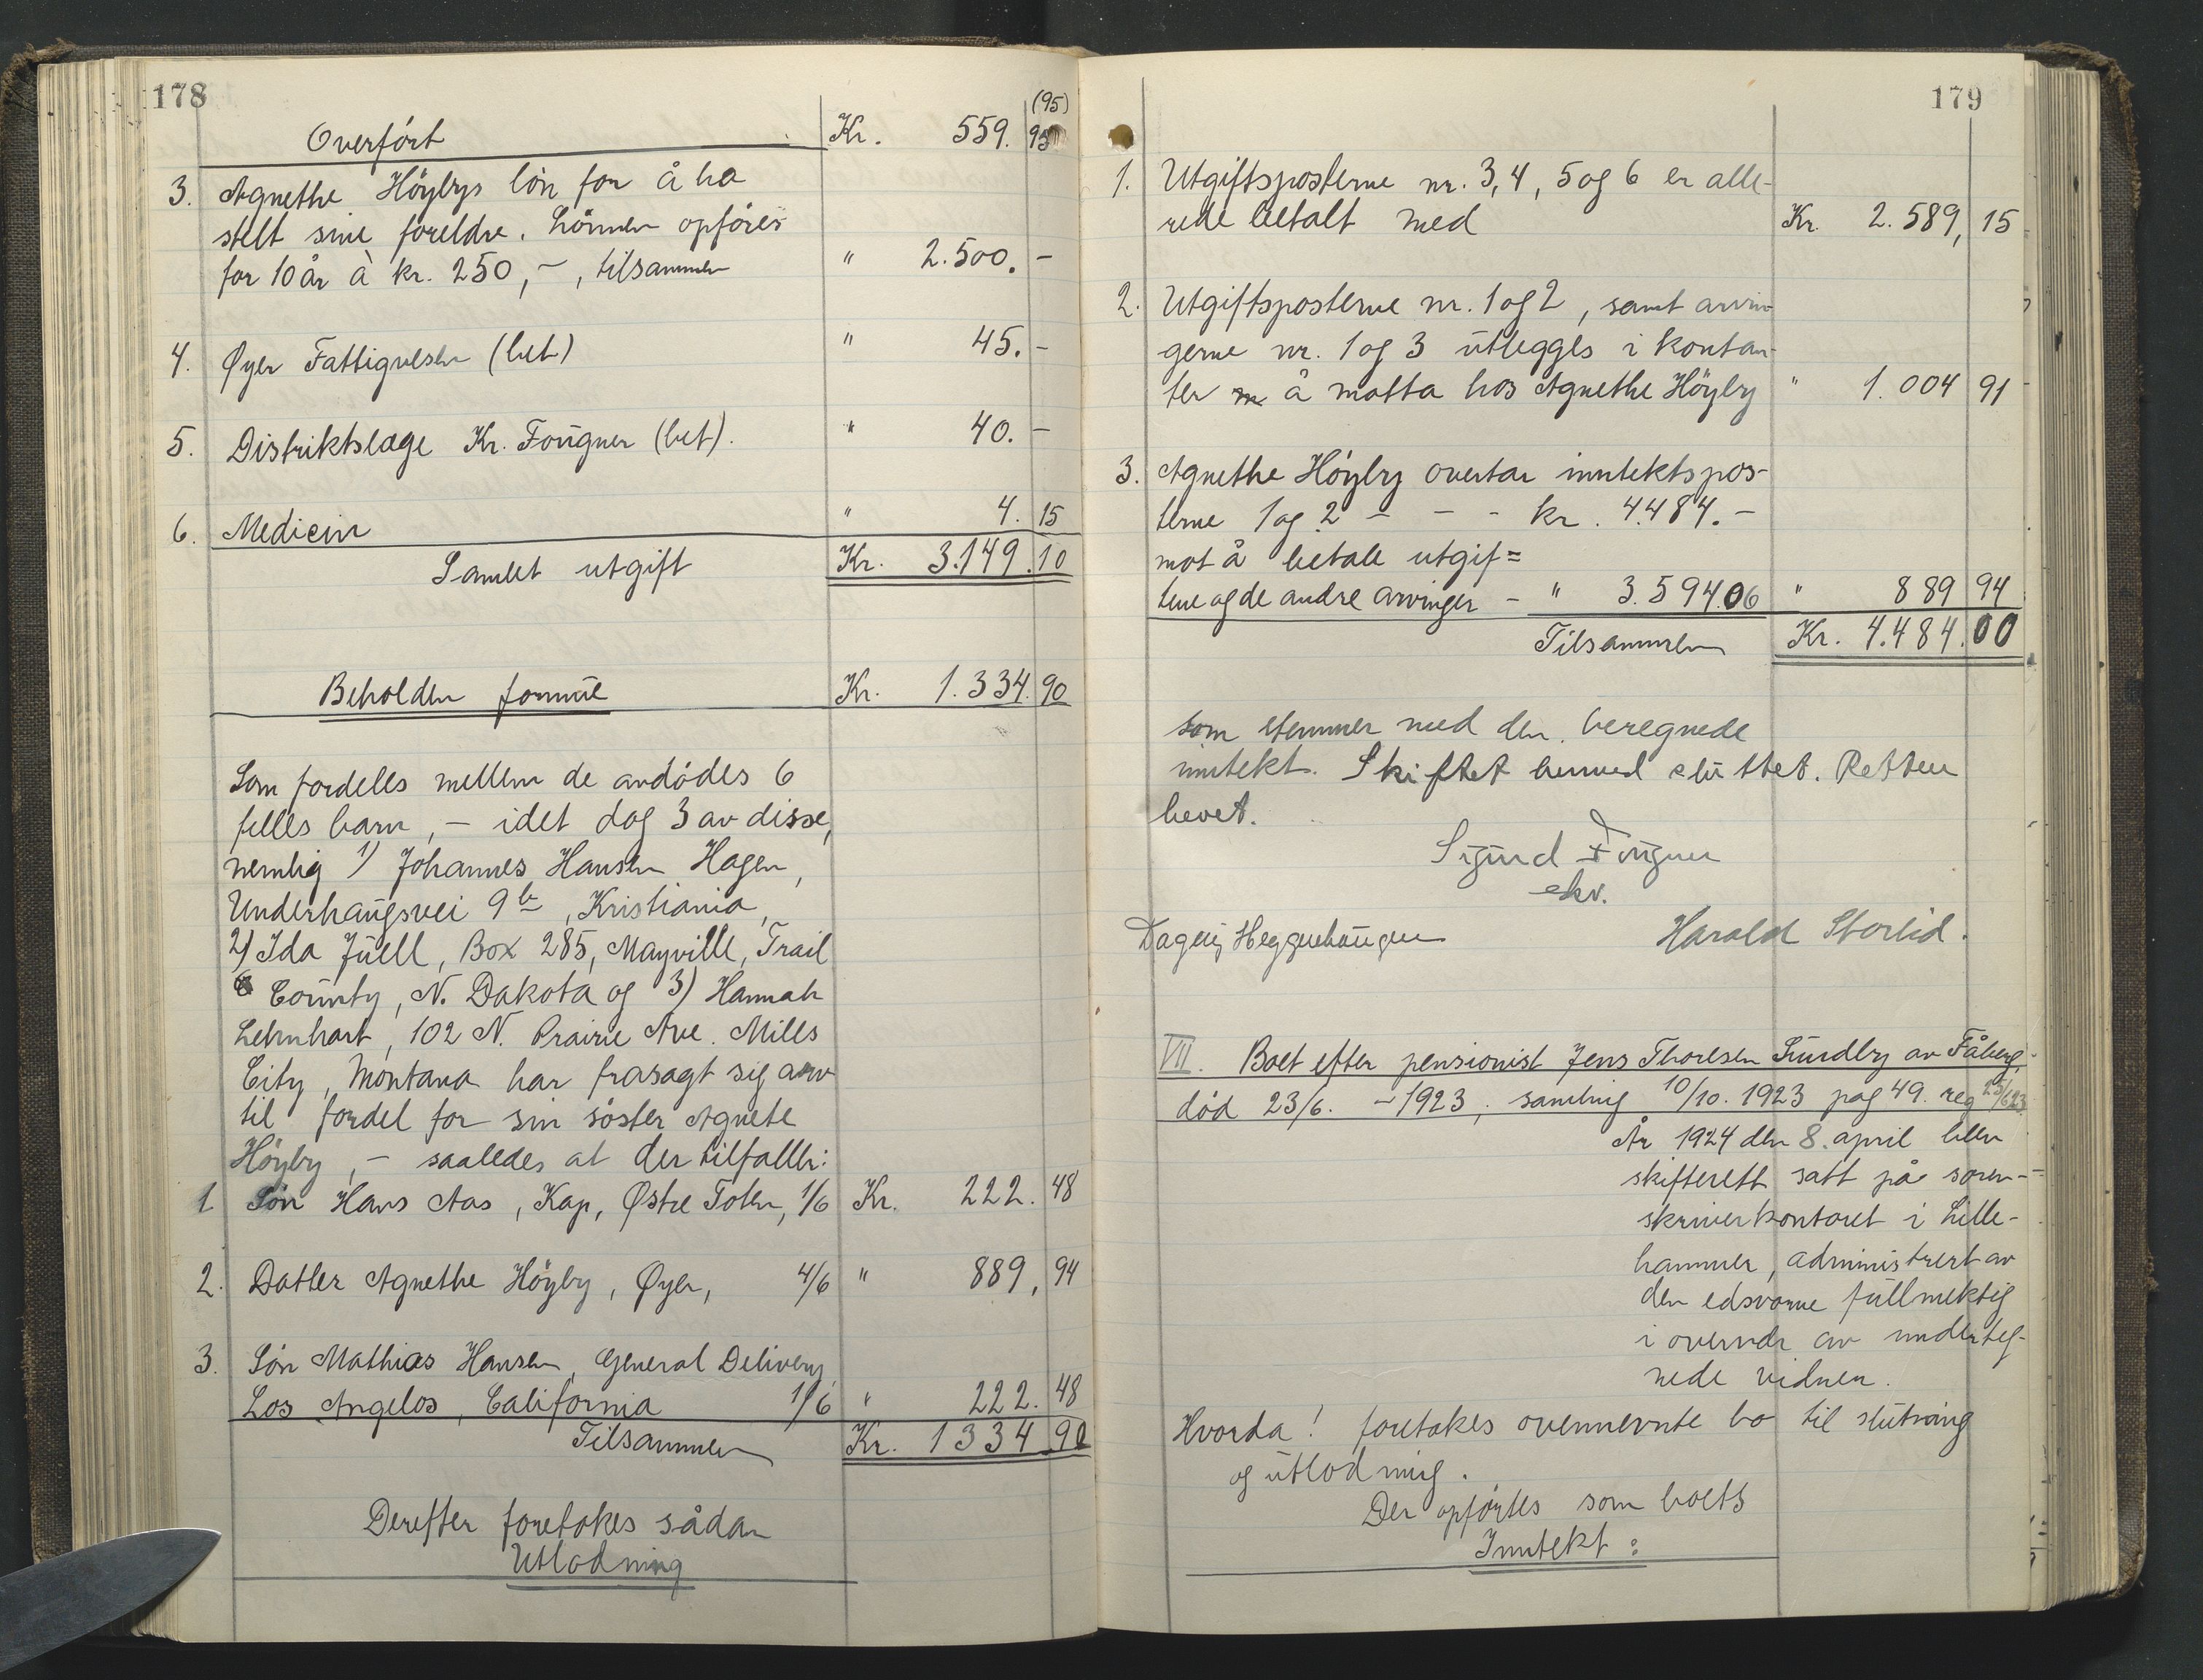 178
Overført Kr. 559. 95
(95)
3. Agnethe Höybys lön for å ha
stelt sine foreldre. Lönnen opføres
for 10 år à kr. 250,-, tilsammen " 2.500. -
4. Øyer Fattigvesen (bet) " 45. -
5. Distriktslæge Kr. Fougner (bet). " 40. -
6. Medicin " 4. 15
Samlet utgift Kr. 3.149. 10
Beholden formue Kr. 1.334. 90
Som fordeles mellem de avdødes 6
felles barn, - idet dog 3 av disse,
nemlig 1) Johannes Hansen Hagen,
Underhaugsvei 9b, Kristiania,
2) Ida Juell, Box 285, Mayville, Trail
County, N. Dakota og 3) Hannah
Lehnhart, 102 N. Prairie Ave. Mills
City, Montana har frasagt sig arv
til fordel for sin söster Agnete
Höyby, - saaledes at der tilfaller:
1 Sön Hans Aas, Kap, Østre Toten, 1/6 Kr. 222. 48
2. Datter Agnethe Höyby, Øyer, 4/6 " 889, 94
3. Sön Mathias Hansen, General Delivery,
Los Angelos, California 1/6 " 222. 48
Tilsammen Kr. 1334 90
Derefter foretakes sådan
Utlodning
179
1. Utgiftsposterne nr. 3, 4, 5 og 6 er alle-
rede betalt med Kr. 2.589, 15
2. Utgiftsposterne nr. 1 og 2, samt arvin-
gerne nr. 1 og 3 utlegges i kontan-
ter å motta hos Agnethe Höyby " 1.004 91
3. Agnethe Höyby overtar inntektspos-
terne 1 og 2 - - - kr. 4.484. -
mot å betale utgif=
tene og de andre arvinger - " 3.594.06 " 889 94
Tilsammen Kr. 4.484. 00
som stemmer med den beregnede
inntekt. Skiftet hermed sluttet. Retten
hevet.
Sigurd Fougner
eksv.
Dagny Heggenhougen Harald Storlid.
VII. Boet efter pensionist Jens Thoresen Sundby av Fåberg,
död 23/6. - 1923, samling 10/10. 1923 pag 49. reg 25/6 23
År 1924 den 8. april blev
skifterett satt på soren-
skriverkontoret i Lille-
hammer, administrert av
den edsvorne fullmektig
i overvær av underteg-
nede vidner.
Hvorda! foretakes ovennevnte bo til slutning
og utlodning.
Der opførtes som boets
Inntekt: